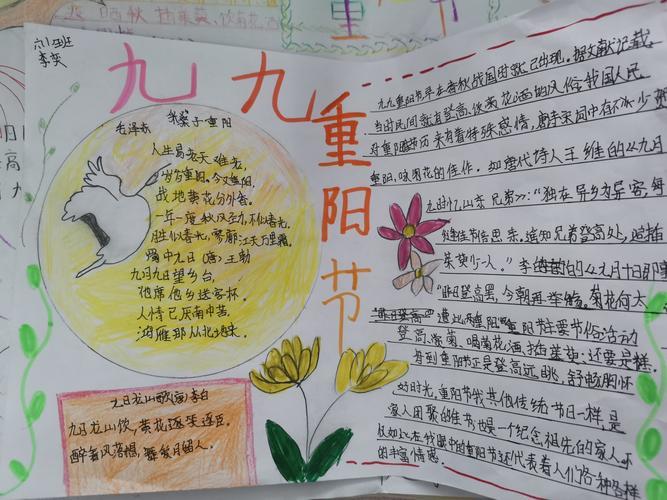 晒秋 插茱萸 饮菊花酒
六1班
李奕
九九重阳节
毛泽东 采桑子·重阳
人生易老天难老,
岁岁重阳。今又重阳,
战地黄花分外香。
一年一度秋风劲,不似春光。
胜似春光,寥廓江天万里霜。
蜀中九日(唐)王勃
九月九日望乡台,
他席他乡送客杯。
人情已厌南中苦,
鸿雁那从北地来。
九日龙山饮(唐)李白
九日龙山饮,黄花逐笑逐臣。
醉看风落帽,舞爱月留人。
九九重阳节早在春秋战国时就已出现。据文献记载,
当时民间就有登高、饮菊花酒的风俗。我国人民
对重阳节历来有着特殊感情,唐宋宋词中有不少贺
重阳,咏菊花的佳作。如唐代诗人王维的《九月
九日忆山东兄弟》:“独在异乡为异客,每
逢佳节倍思亲。遥知兄弟登高处,遍插
茱萸少一人。”李的《九月十日即事》
“昨日登高罢,今朝再举觞。菊花何太
遭此两重阳”重阳节主要节俗活动
登高、赏菊、喝菊花酒、插茱萸;还要是糕。
每到重阳节正是登高远眺,舒畅胸怀
好时光。重阳节我其他传统节日一样,是
家人团聚的佳节也是一个纪念祖先的家人
如此在我眼中的重阳节还代表着人们各种各样
的丰富情感